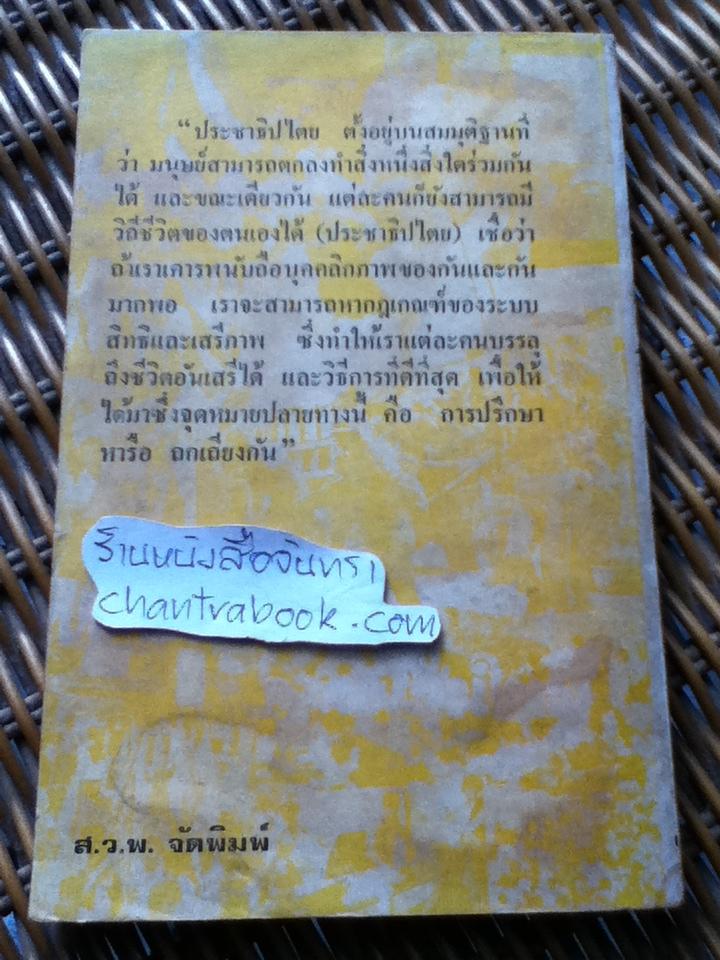 “ประชาธิปไตย ตั้งอยู่บนสมมุติฐานที่
ว่า มนุษย์สามารถตกลงทำสิ่งหนึ่งสิ่งใดร่วมกัน
ได้ และขณะเดียวกัน แต่ละคนก็ยังสามารถมี
วิถีชีวิตของตนเองได้ (ประชาธิปไตย) เชื่อว่า
ถ้าเราเคารพนับถือบุคคลิกภาพของกันและกัน
มากพอ เราจะสามารถหากฎเกณฑ์ของระบบ
สิทธิและเสรีภาพ ซึ่งทำให้เราแต่ละคนบรรลุ
ถึงชีวิตอันเสรีได้ และวิธีการที่ดีที่สุด เพื่อให้
ได้มาซึ่งจุดหมายปลายทางนี้ คือ การปรึกษา
หารือ ถกเถียงกัน”
ร้านหนังสือจันทรา
chantrabook.com
ส.ว.พ. จัดพิมพ์